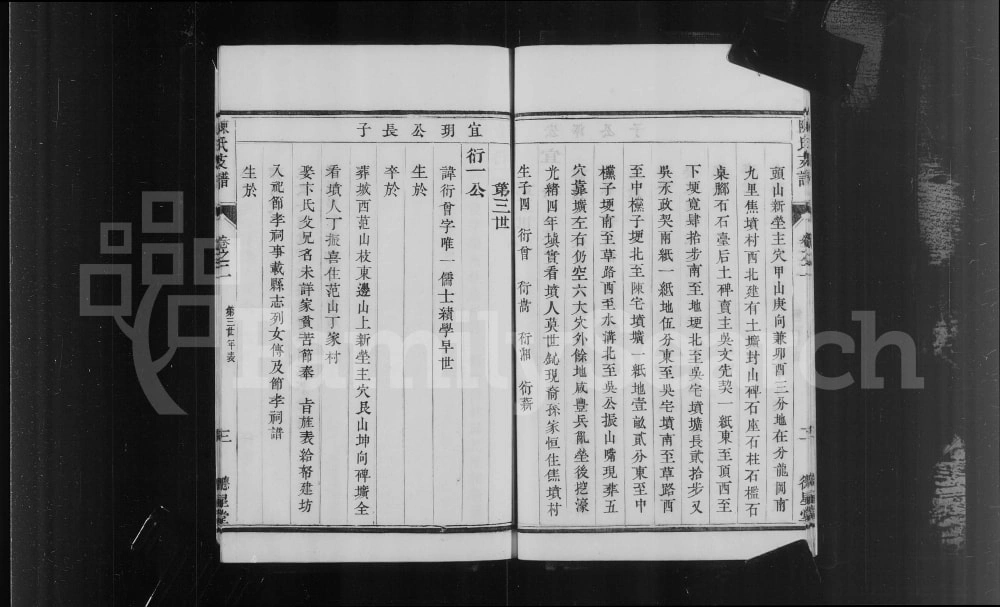 頭山新塋主穴甲山庚向兼卯酉三分地在分龍岡南
九里焦墳村西北建有土壙封山碑石座石柱石欖石
桌腳石石臺后土碑賣主吳文先契一紙東至頂西至
下埂寬肆拾步南至地埂北至吳宅墳壙長貳拾步又
吳永政契兩紙一紙地伍分東至吳宅墳南至草路西
至中欓子埂北至陳宅墳壙一紙地壹畝貳分東至中
欓子埂南至草路西至水溝北至吳公振山嘴現葬五
穴靠壙左右仍空六大穴外餘地咸豐兵亂塋後挖濠
光緒四年填實看墳人莫世 現裔孫家恒住焦墳村
生子四 衍曾 衍嵩 衍湘 衍薪
陳氏支譜
卷之二
二
德星堂
第三世
宜玥公長子
衍一公
諱衍曾字唯一儒士績學早世
生於
卒於
葬城西范山枝東邊山上新塋主穴艮山坤向碑壙全
看墳人丁振喜住范山丁家村
娶卞氏父兄名未詳家貧苦節奉 旨旌表給帑建坊
入祀節孝祠事載縣志列女傳及節孝祠譜
生於
陳氏支譜
卷之二
第三世年表
三
德星堂
FamilySearch